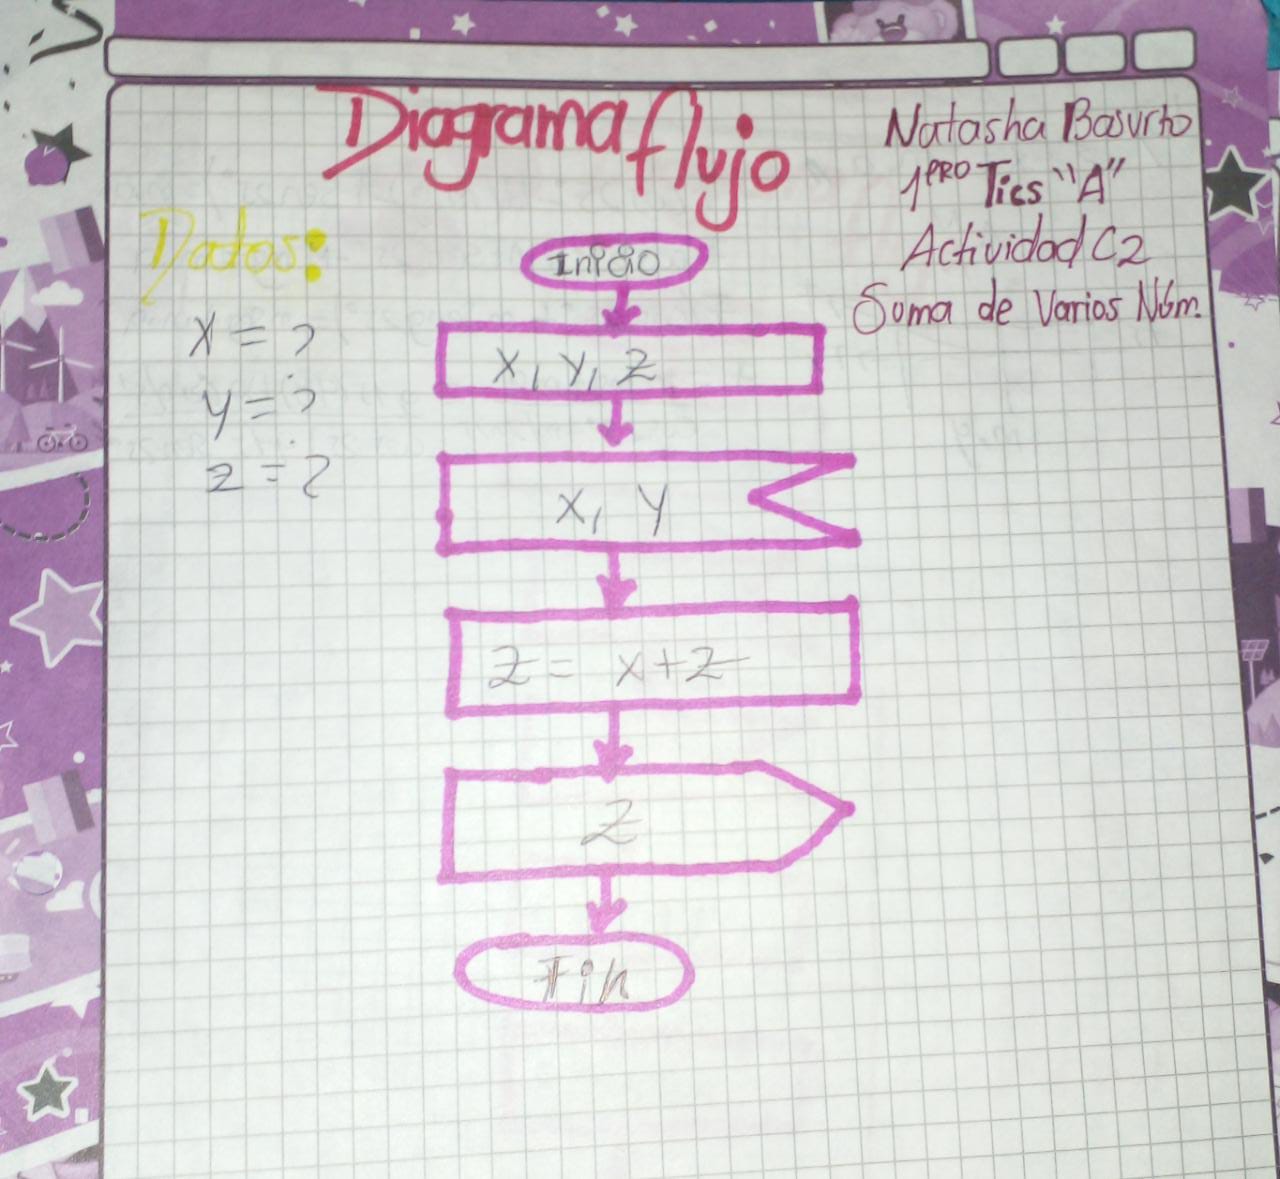 Diagrama flujo
Natasha Basurto
1PRO Tics "A"
Actividad C2
Suma de Varios Núm.
Datos:
x = ?
y = ?
z = ?
Inicio
x, y, z
x, y
z = x+z
z
Fin